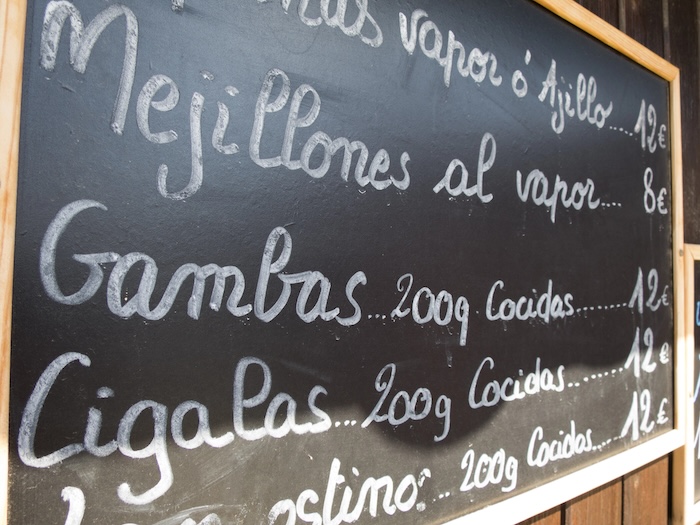 vapor ó Ajillo....12€
Mejillones al vapor... 8€
Gambas...200g Cocidas.......12€
Cigalas...200g Cocidas.......12€
200g Cocidas.....12€